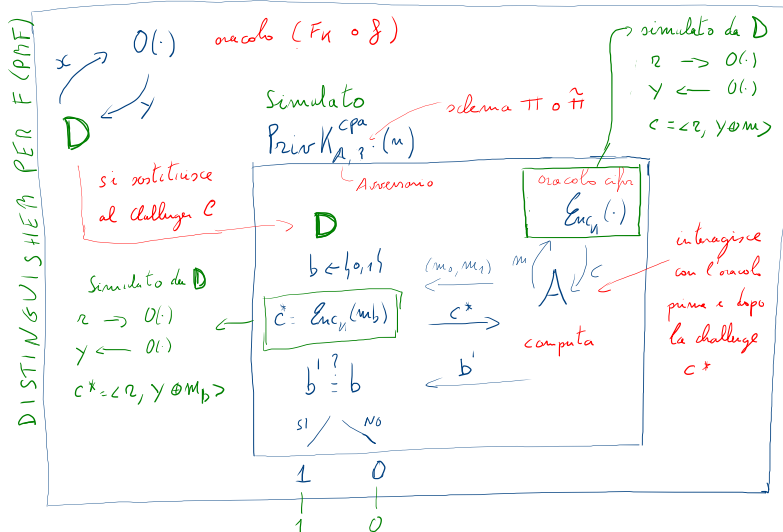 DISTINGUISHER PER F (PRF)
x
O(·)
y
D
oracolo (Fₖ o f)
si sostituisce
al challenger C
Simulato
PrivK^cpa_A,? (n)
schema Π o Π̃
Avversario
simulato da D
r → O(·)
y ← O(·)
c = <r, y⊕m>
oracolo cifr
Encₖ(·)
D
b ← {0,1}
(m₀, m₁)
m
c
A
c* = Encₖ(mb)
c*
computa
b' ≟ b
b'
SI
NO
1 0
1 0
Simulato da D
r → O(·)
y ← O(·)
c* = <r, y⊕m_b>
interagisce
con l'oracolo
prima e dopo
la challenge
c*